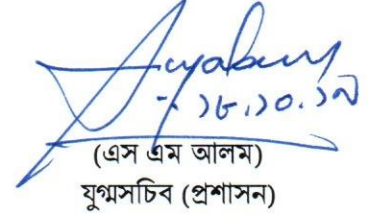 ১৮.১০.১৯
(এস এম আলম)
যুগ্মসচিব (প্রশাসন)